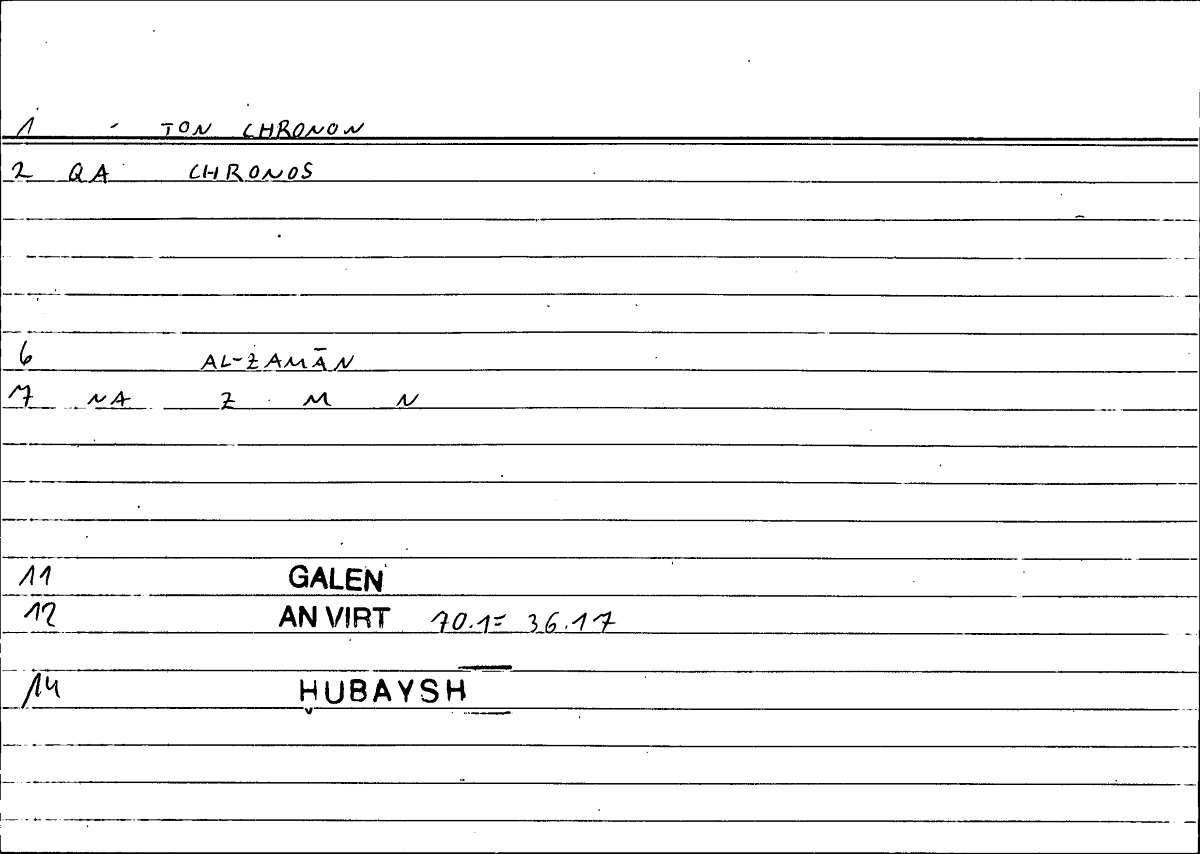 1 - TON CHRONON
2 QA CHRONOS
6 AL-ZAMĀN
7 NA Z M N
11 GALEN
12 AN VIRT 70.1= 36.17
14 ḤUBAYSH